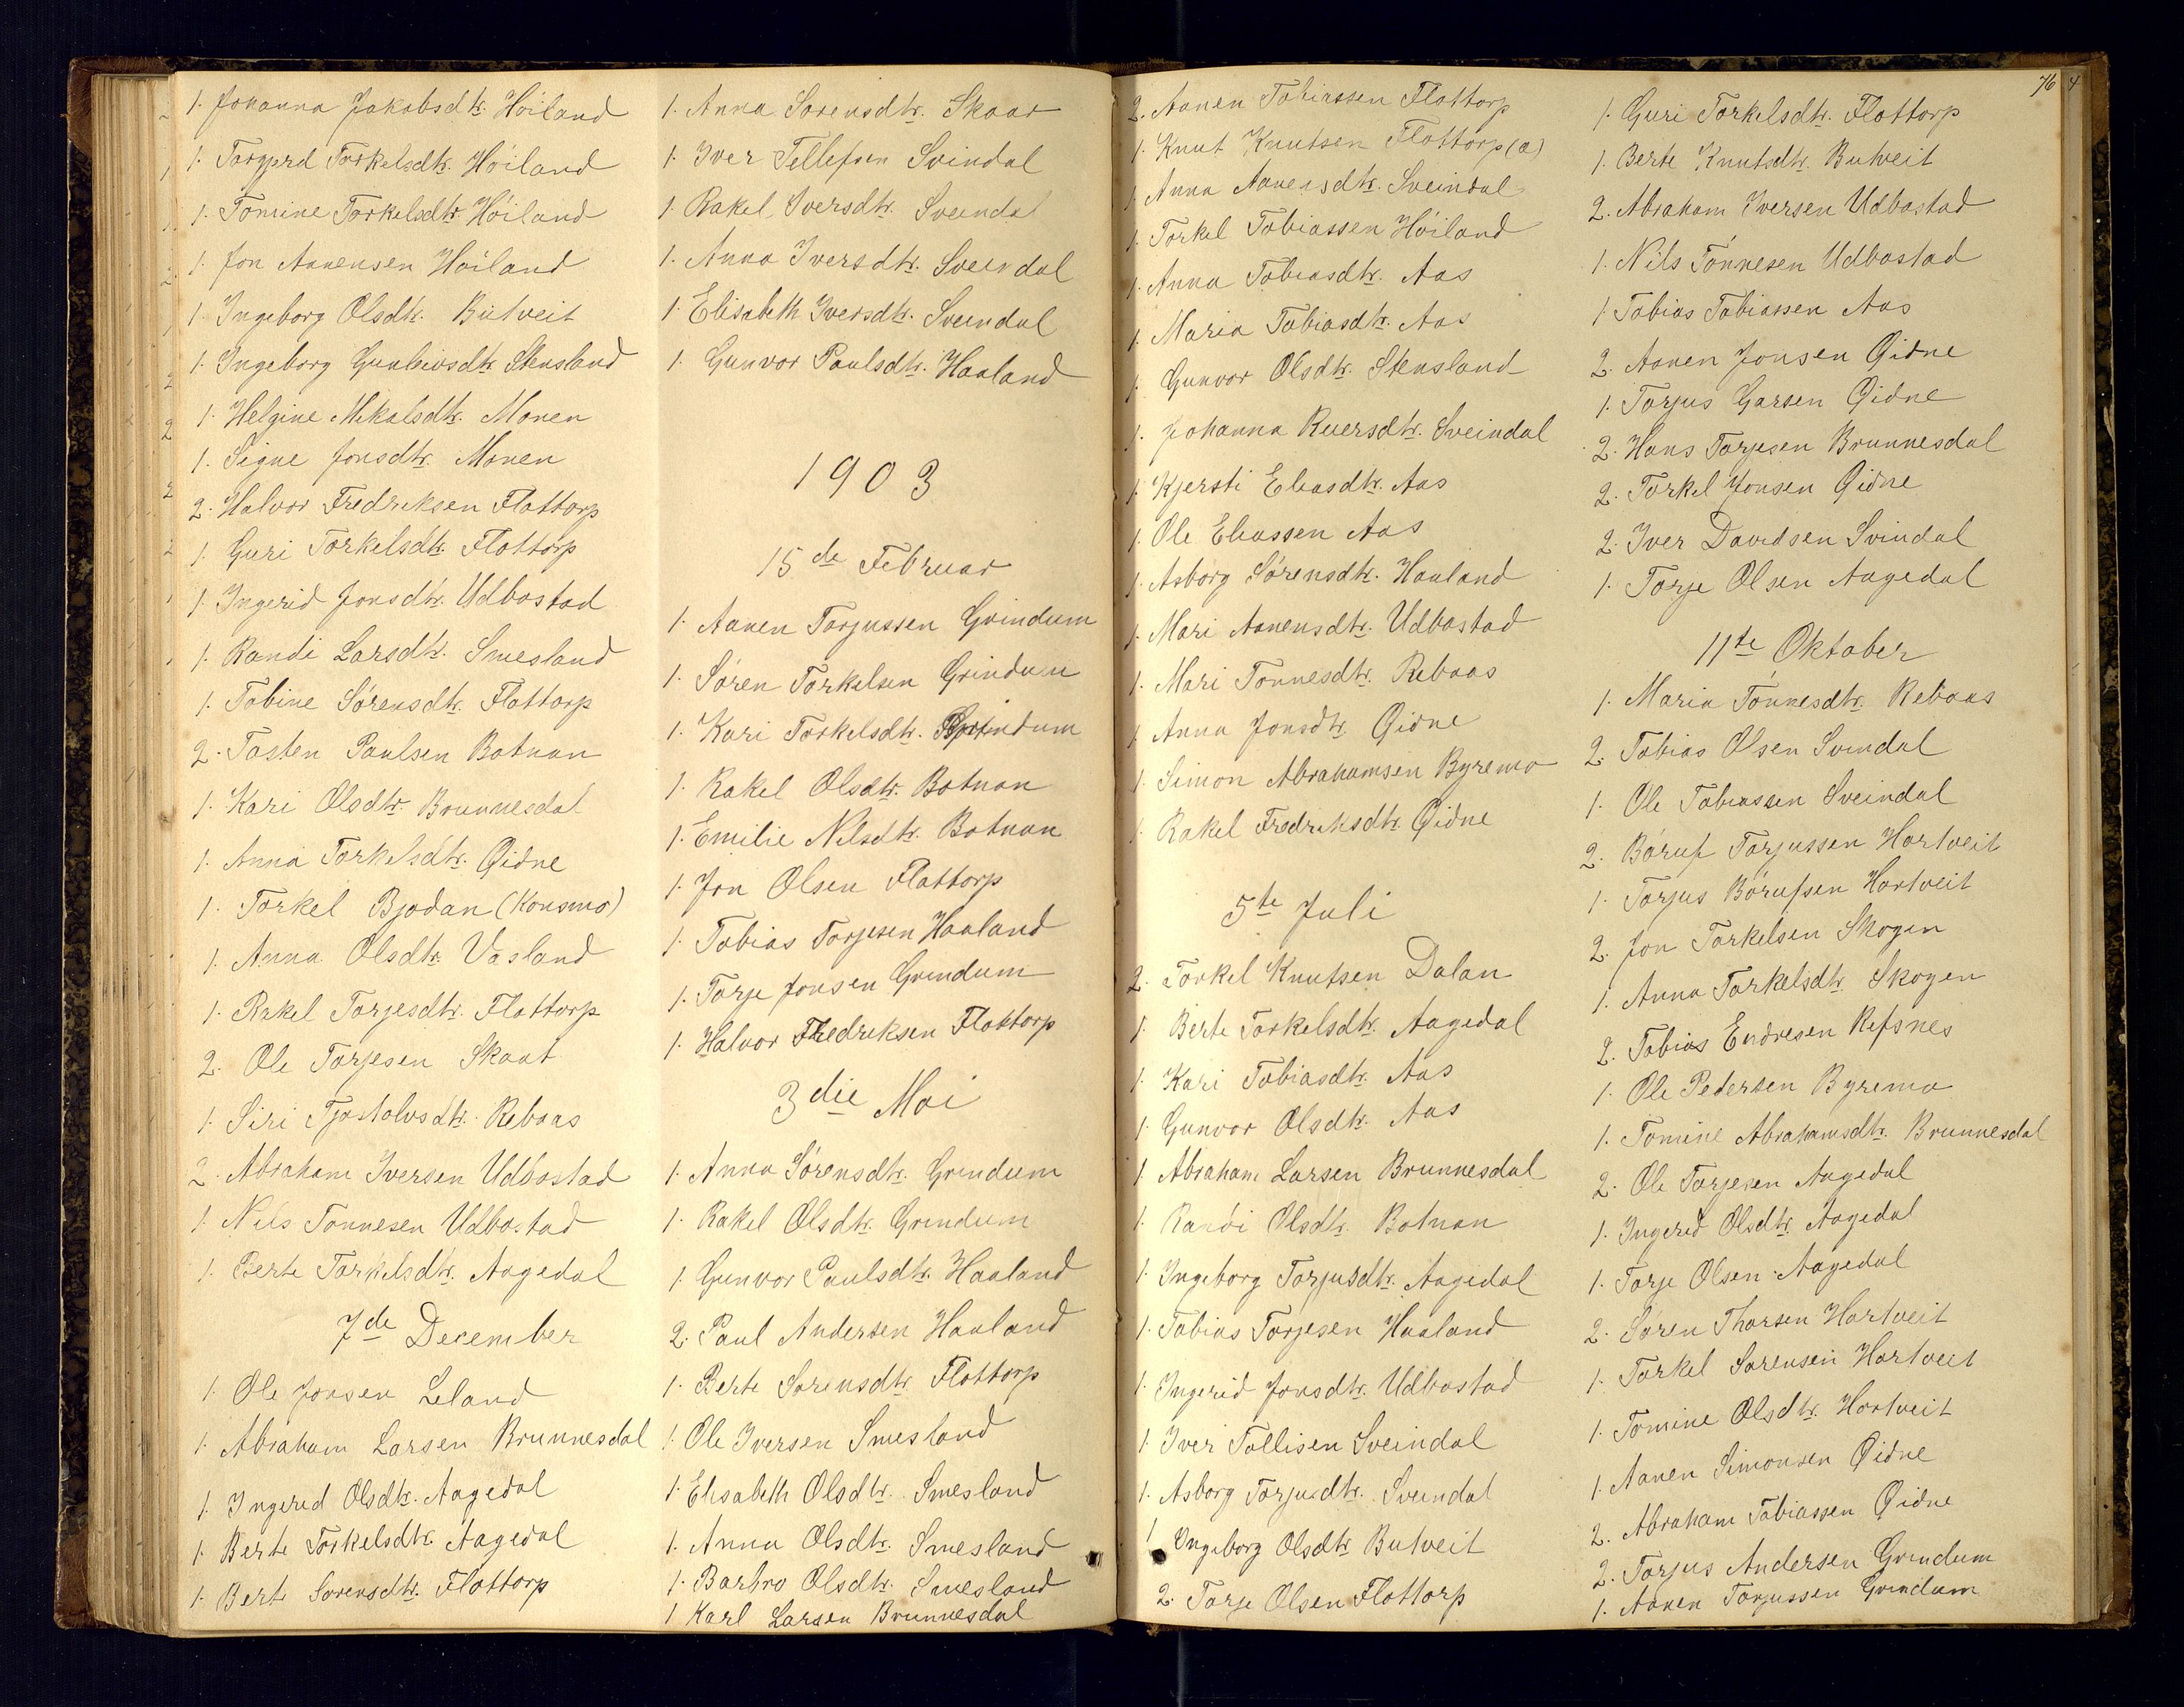 1. Johanna Jakobsdtr. Höiland
1. Torgerd Torkelsdtr. Höiland
1. Tomine Torkelsdtr. Höiland
1. Jon Aanensen Höiland
1. Ingeborg Olsdtr. Butveit
1. Ingeborg Gunleivsdtr. Stensland
1. Helgine Mikalsdtr. Monen
1. Signe Jonsdtr. Monen
2. Halvor Fredriksen Flottorp
1. Guri Torkelsdtr. Flottorp
1. Ingerid Jonsdtr. Udbostad
1. Randi Larsdtr. Smesland
1. Tobine Sörensdtr. Flottorp
2. Tosten Paulsen Botnan
1. Kari Olsdtr. Brunnesdal
1. Anna Torkelsdtr. Öidne
1. Torkel Bjodan (Konsmo)
1. Anna Olsdtr. Vasland
1. Rakel Torjesdtr. Flottorp
2. Ole Torjesen Skaat
1. Siri Tjostolvsdtr. Rebaas
2. Abraham Iversen Udbostad
1. Nils Tonnesen Udbostad
1. Berte Torkelsdtr. Aagedal
7de December
1. Ole Jonsen Leland
1. Abraham Larsen Brunnesdal
1. Ingerid Olsdtr. Aagedal
1. Berte Torkelsdtr. Aagedal
1. Berte Sorensdtr. Flottorp
1. Anna Sorensdtr. Skaar
1. Iver Tellefsen Svindal
1. Rakel Iversdtr. Sveindal
1. Anna Iversdtr. Sveindal
1. Elisabeth Iversdtr. Sveindal
1. Gunvor Paulsdtr. Haaland
1903
15de Februar
1. Aanen Torjussen Grindum
1. Sören Torkelsen Grindum
1. Kari Torkelsdtr. Grindum
1. Rakel Olsdtr. Botnan
1. Emilie Nilsdtr. Botnan
1. Jon Olsen Flottorp
1. Tobias Torjesen Haaland
1. Torje Jonsen Grindum
1. Halvor Fredriksen Flottorp
3die Mai
1. Anna Sörensdtr. Grindum
1. Rakel Olsdtr. Grindum
1. Gunvor Paulsdtr. Haaland
2. Paul Andersen Haaland
1. Berte Sorensdtr. Flottorp
1. Ole Iversen Smesland
1. Elisabeth Olsdtr. Smesland
1. Anna Olsdtr. Smesland
1. Barbro Olsdtr. Smesland
1 Karl Larsen Brunnesdal
2. Aanen Tobiassen Flottorp
1. Knut Knutsen Flottorp (a)
1. Anna Aanensdtr. Sveindal
1. Torkel Tobiassen Höiland
1. Anna Tobiasdtr. Aas
1. Maria Tobiasdtr. Aas
1. Gunvor Olsdtr. Stensland
1. Johanna Reiersdtr. Sveindal
1. Kjersti Eliasdtr. Aas
1. Ole Eliassen Aas
1. Asborg Sörensdtr. Haaland
1. Mari Aanensdtr. Udbostad
1. Mari Tonnesdtr. Rebaas
1. Anna Jonsdtr. Öidne
1. Simon Abrahamsen Byremo
1. Rakel Fredriksdtr. Öidne
5te Juli
2. Torkel Knutsen Dalan
1. Berte Torkelsdtr. Aagedal
1. Kari Tobiasdtr. Aas
1. Gunvor Olsdtr. Aas
1. Abraham Larsen Brunnesdal
1. Randi Olsdtr. Botnan
1. Ingeborg Torjusdtr. Aagedal
1. Tobias Torjesen Haaland
1. Ingerid Jonsdtr. Udbostad
1. Iver Tollisen Sveindal
1. Asborg Torjusdtr. Sveindal
1 Ingeborg Olsdtr. Butveit
2. Torje Olsen Flottorp
76
1. Guri Torkelsdtr. Flottorp
1. Berte Knutsdtr. Butveit
2. Abraham Iversen Udbostad
1. Nils Tönnesen Udbostad
1 Tobias Tobiassen Aas
2. Aanen Jonsen Öidne
1. Torjus Garsen Öidne
2. Hans Torjesen Brunnesdal
2. Torkel Jonsen Öidne
2. Iver Davidsen Svindal
1. Torje Olsen Aagedal
11te Oktober
1. Maria Tönnesdtr. Rebaas
2. Tobias Olsen Svindal
1. Ole Tobiassen Sveindal
2. Böruf Torjussen Hortveit
1. Torjus Börufsen Hortveit
2. Jon Torkelsen Skogen
1. Anna Torkelsdtr. Skogen
2. Tobias Endresen Refsnes
1. Ole Pedersen Byremo
1. Tomine Abrahamsdtr. Brunnesdal
2. Ole Torjesen Aagedal
1. Ingerid Olsdtr. Aagedal
1. Torje Olsen Aagedal
2. Sören Thorsen Hortveit
1. Torkel Sorensen Hortveit
1. Tomine Olsdtr. Hortveit
1. Aanen Simonsen Öidne
2. Abraham Tobiassen Öidne
2. Torjus Andersen Grindum
1. Aanen Torjussen Grindum